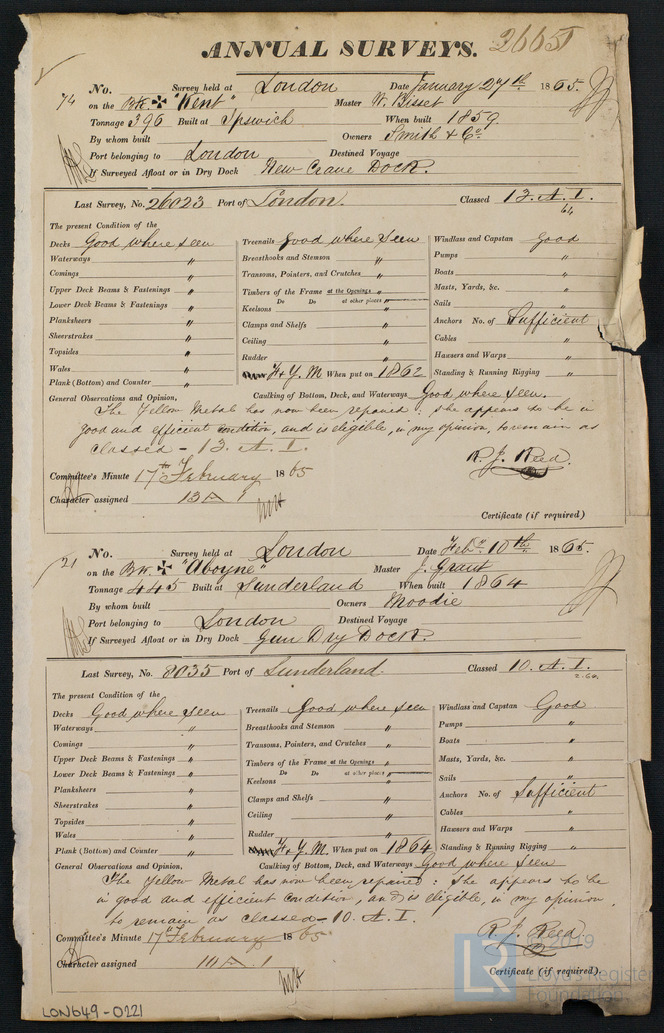 ANNUAL SURVEYS. 26651
74 No. Survey held at London Date January 27th 1865.
on the Bk. ✠ "Kent" Master W. Bisset
Tonnage 396 Built at Ipswich When built 1859
By whom built Owners Smith & Co.
Port belonging to London Destined Voyage
If Surveyed Afloat or in Dry Dock New Crane Dock.
Last Survey, No. 26023 Port of London. Classed 13. A. 1.
64
The present Condition of the
Decks Good where seen Treenails Good where seen Windlass and Capstan Good
Waterways " Breasthooks and Stemson " Pumps "
Comings " Transoms, Pointers, and Crutches " Boats "
Upper Deck Beams & Fastenings " Timbers of the Frame at the Openings " Masts, Yards, &c. "
Do Do at other places "
Lower Deck Beams & Fastenings " Keelsons " Sails "
Planksheers " Clamps and Shelfs " Anchors No. of Sufficient
Sheerstrakes " Ceiling " Cables "
Topsides " Rudder " Hawsers and Warps "
Wales " F & Y. M When put on 1862 Standing & Running Rigging "
Plank (Bottom) and Counter "
General Observations and Opinion, Caulking of Bottom, Deck, and Waterways Good where seen.
The Yellow Metal has now been repaired: she appears to be in
good and efficient condition, and is eligible, in my opinion, to remain as
classed - 13. A. 1.
R. J. Reed.
Committee's Minute 17th February 1865
Character assigned 13 A 1
Certificate (if required)
21 No. Survey held at London Date Feby. 10th 1865.
on the Bk. ✠ "Aboyne" Master J. Grant
Tonnage 445 Built at Sunderland When built 1864
By whom built Owners Moodie
Port belonging to London Destined Voyage
If Surveyed Afloat or in Dry Dock Gun Dry Dock.
Last Survey, No. 8035 Port of Sunderland. Classed 10. A. 1.
2.64
The present Condition of the
Decks Good where seen Treenails Good where seen Windlass and Capstan Good
Waterways " Breasthooks and Stemson " Pumps "
Comings " Transoms, Pointers, and Crutches " Boats "
Upper Deck Beams & Fastenings " Timbers of the Frame at the Openings " Masts, Yards, &c. "
Do Do at other places "
Lower Deck Beams & Fastenings " Keelsons " Sails "
Planksheers " Clamps and Shelfs " Anchors No. of Sufficient
Sheerstrakes " Ceiling " Cables "
Topsides " Rudder " Hawsers and Warps "
Wales " F & Y. M. When put on 1864 Standing & Running Rigging "
Plank (Bottom) and Counter "
General Observations and Opinion, Caulking of Bottom, Deck, and Waterways Good where seen
The Yellow Metal has now been repaired: she appears to be
in good and efficient condition, and is eligible, in my opinion,
to remain as classed - 10. A. 1.
R. J. Reed.
Committee's Minute 17th February 1865
Character assigned 10 A 1
Certificate (if required).
LR © 2019
Lloyd's Register
Foundation
LON649-0221